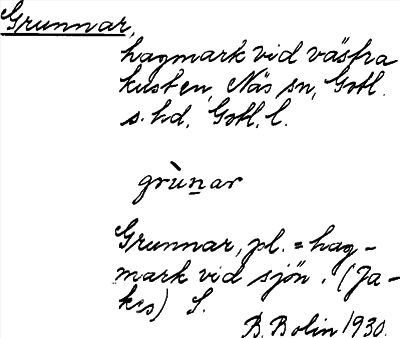 Grunnar,
hagmark vid västra
kusten, Näs sn, Gotl.
s. hd, Gotl. l.
grùṉar
Grunnar, pl. = hag-
mark vid sjön. (Ja-
kes) S.
B. Bolin 1930.